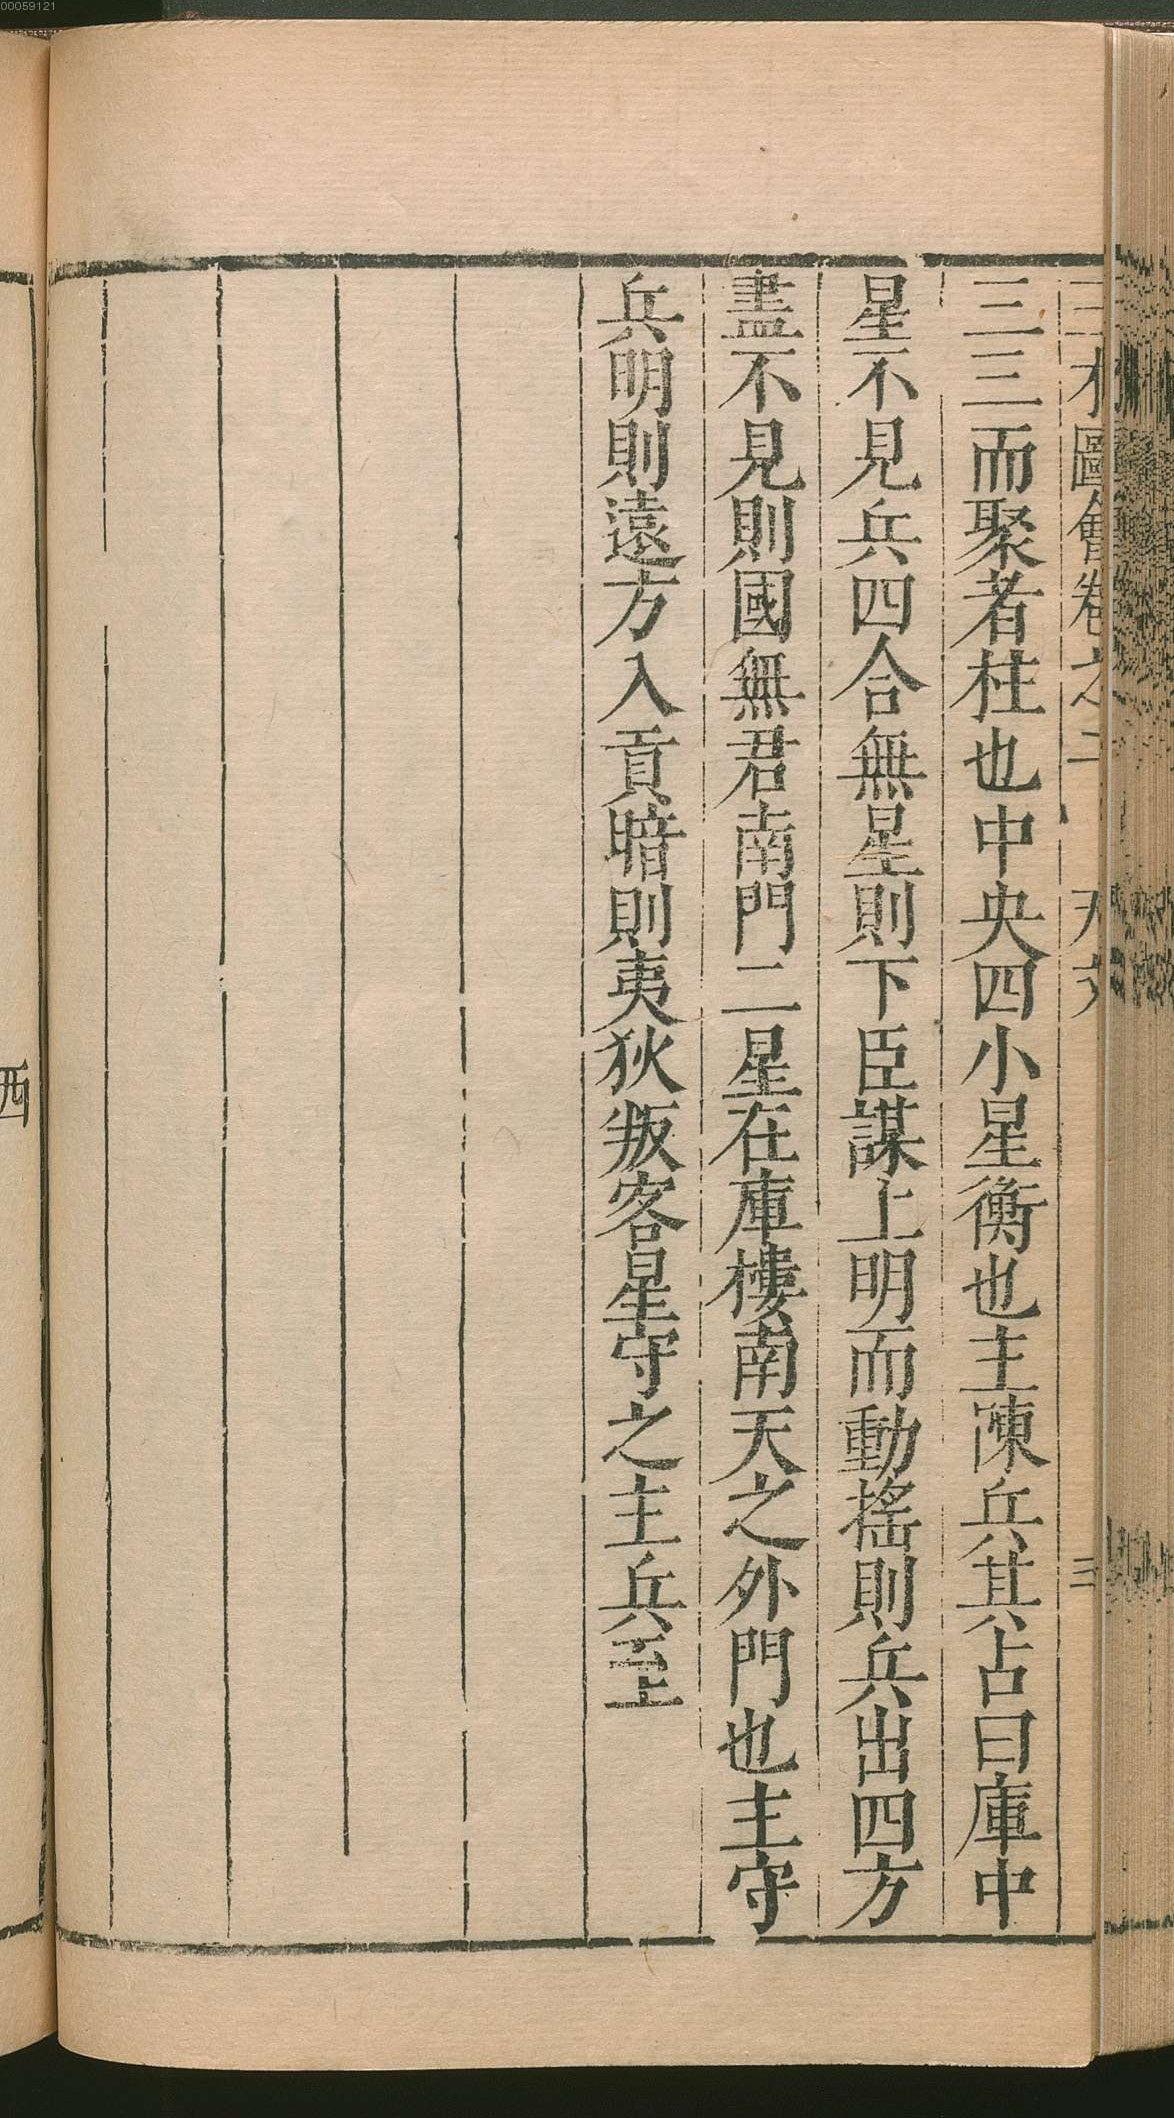 00059121
三才圖會卷之二 天文 三
三三而聚者柱也中央四小星衡也主陳兵其占曰庫中
星不見兵四合無星則下臣謀上明而動搖則兵出四方
盡不見則國無君南門二星在庫樓南天之外門也主守
兵明則遠方入貢暗則夷狄叛客星守之主兵至
西